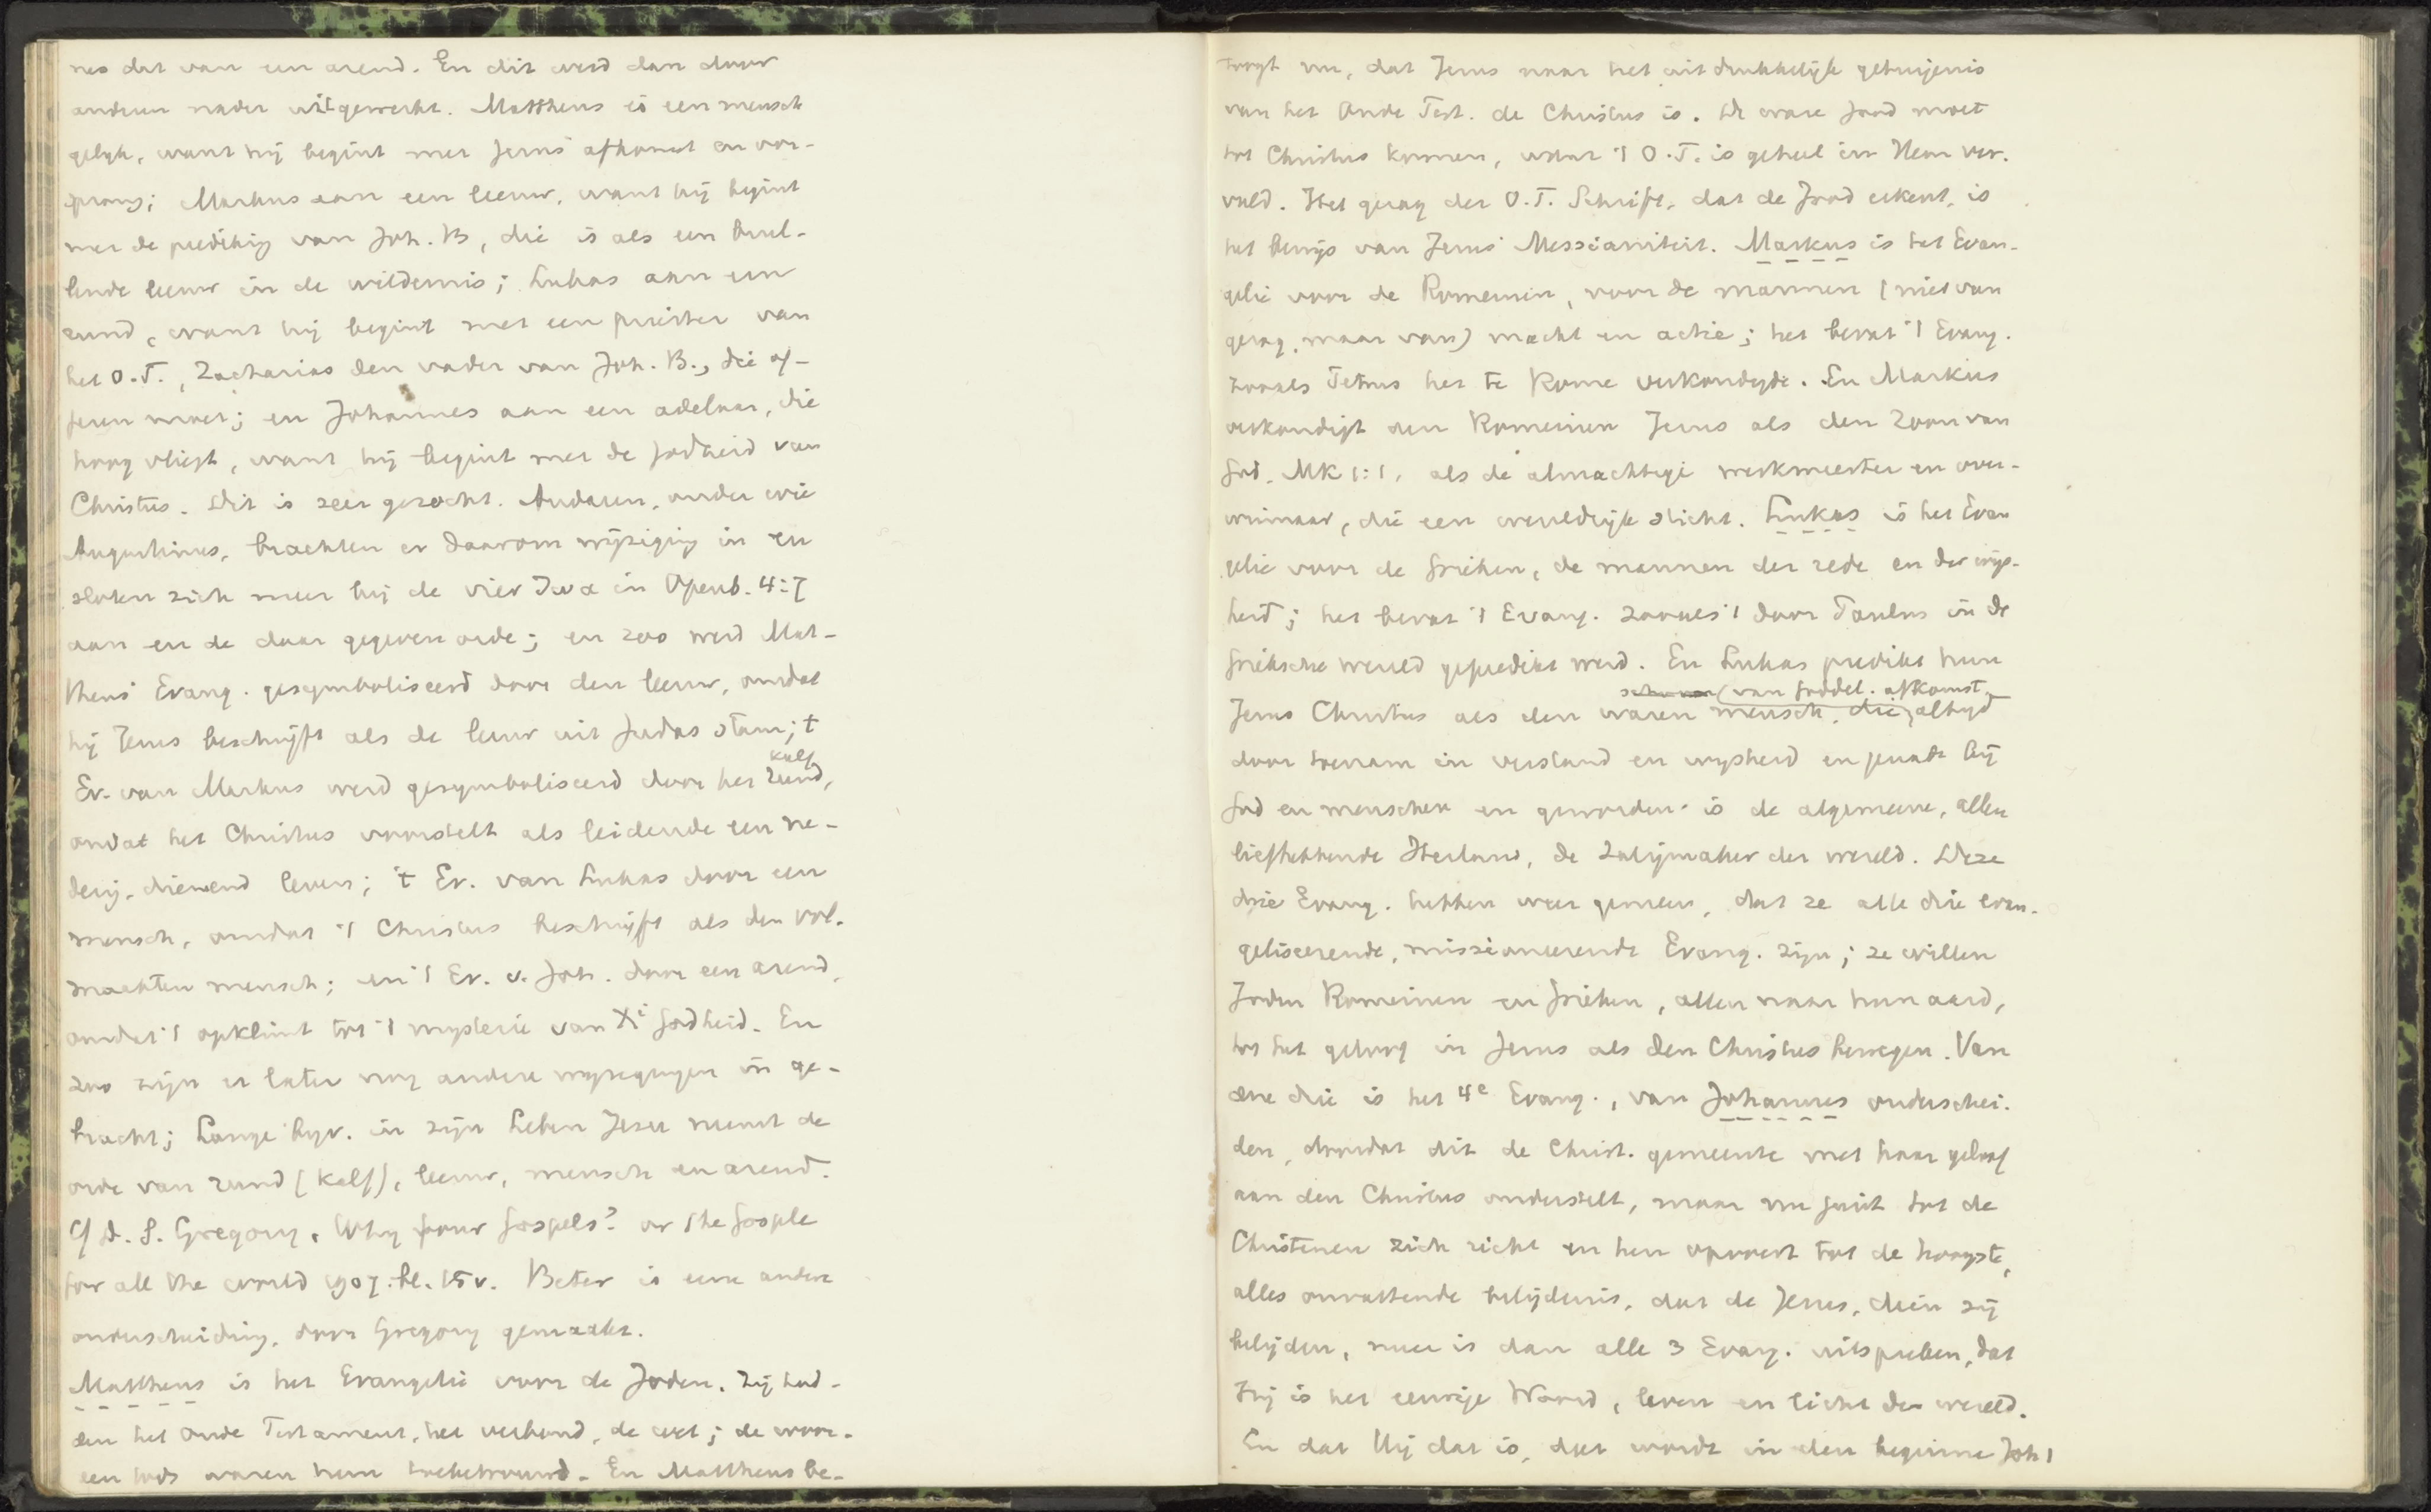 nes dat van een arend. En dit werd dan door
anderen nader uitgewerkt. Mattheus is een mensch
gelijk, want hij begint met Jezus' afkomst en oor-
sprong; Markus aan een leeuw, want hij begint
met de prediking van Joh. B, die is als een brul-
lende leeuw in de wildernis; Lukas aan een
rund, want hij begint met een priester van
het O.T., Zacharias den vader van Joh. B., die of-
feren moet; en Johannes aan een adelaar, die
hoog vliegt, want hij begint met de Godheid van
Christus. Dit is zeer gezocht. Anderen, onder wie
Augustinus, brachten er daarom wijziging in en
sloten zich meer bij de vier ζωα in Openb. 4:7
aan en de daar gegeven orde; en zoo werd Mat-
theus' Evang. gesymboliseerd door den leeuw, omdat
hij Jezus beschrijft als de leeuw uit Judas stam; 't
Ev. van Markus werd gesymboliseerd door het rund, kalf
omdat het Christus voorstelt als leidende een ne-
derig, dienend leven; 't Ev. van Lukas door een
mensch, omdat 't Christus beschrijft als den vol-
maakten mensch; en 't Ev. v. Joh. door een arend,
omdat 't opklimt tot 't mysterie van Xi Godheid. En
zoo zijn er later nog andere wijzigingen in ge-
bracht; Lange bijv. in zijn Leben Jesu neemt de
orde van rund (kalf), leeuw, mensch en arend.
Cf D. S. Gregory, Why four Gospels? or the Gosple
for all the world 1907. bl. 15 v. Beter is eene andere
onderscheiding, door Gregory gemaakt.
Mattheus is het Evangelie voor de Joden. Zij had-
den het Oude Testament, het verbond, de wet; de woor-
den Gods waren hun toebetrouwd. En Mattheus be-
toogt nu, dat Jezus naar het uitdrukkelijk getuigenis
van het Oude Test. de Christus is. De ware Jood moet
tot Christus komen, want 't O.T. is geheel in Hem ver-
vuld. Het gezag der O.T. Schrift, dat de Jood erkent, is
het bewijs van Jezus' Messianiteit. Markus is het Evan-
gelie voor de Romeinen, voor de mannen (niet van
gezag, maar van) macht en actie; het bevat 't Evang.
zooals Petrus het te Rome verkondigde. En Markus
verkondigt den Romeinen Jezus als den Zoon van
God, Mk 1:1, als de almachtige werkmeester en over-
winnaar, die een wereldrijk sticht. Lukas is het Evan
gelie voor de Grieken, de mannen der rede en der wijs-
heid; het bevat 't Evang. zooals 't door Paulus in de
Grieksche wereld gepredikt werd. En Lukas predikt hun
(van Goddel. afkomst,
Jezus Christus als den waren mensch, die, altijd
door toenam in verstand en wijsheid en genade bij
God en menschen en geworden is de algemeene, allen
liefhebbende Heiland, de Zaligmaker der wereld. Deze
drie Evang. hebben weer gemeen, dat ze alle drie evan-
geliseerende, missioneerende Evang. zijn; ze willen
Joden Romeinen en Grieken, allen naar hun aard,
tot het geloof in Jezus als den Christus bewegen. Van
deze drie is het 4e Evang., van Johannes onderschei-
den, doordat dit de Christ. gemeente met haar geloof
aan den Christus onderstelt, maar nu juist tot de
Christenen zich richt en hen opvoert tot de hoogste,
alles omvattende belijdenis, dat de Jezus, dien zij
belijden, meer is dan alle 3 Evang. uitspreken, dat
Hij is het eeuwige Woord, leven en licht der wereld.
En dat Hij dat is, dat wordt in den beginne Joh 1